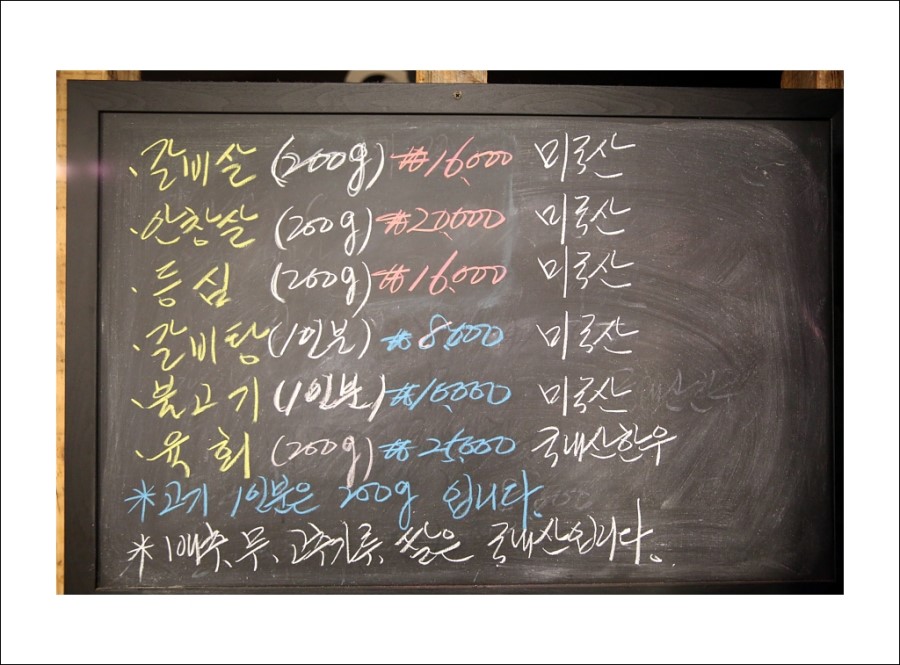 · 갈비살 (200g) ₩16,000 미국산
· 안창살 (200g) ₩20,000 미국산
· 등심 (200g) ₩16,000 미국산
· 갈비탕 (1인분) ₩8,000 미국산
· 불고기 (1인분) ₩10,000 미국산
· 육회 (200g) ₩25,000 국내산한우
* 고기 1인분은 200g 입니다.
* 배추, 무, 고추가루, 쌀은 국내산입니다.